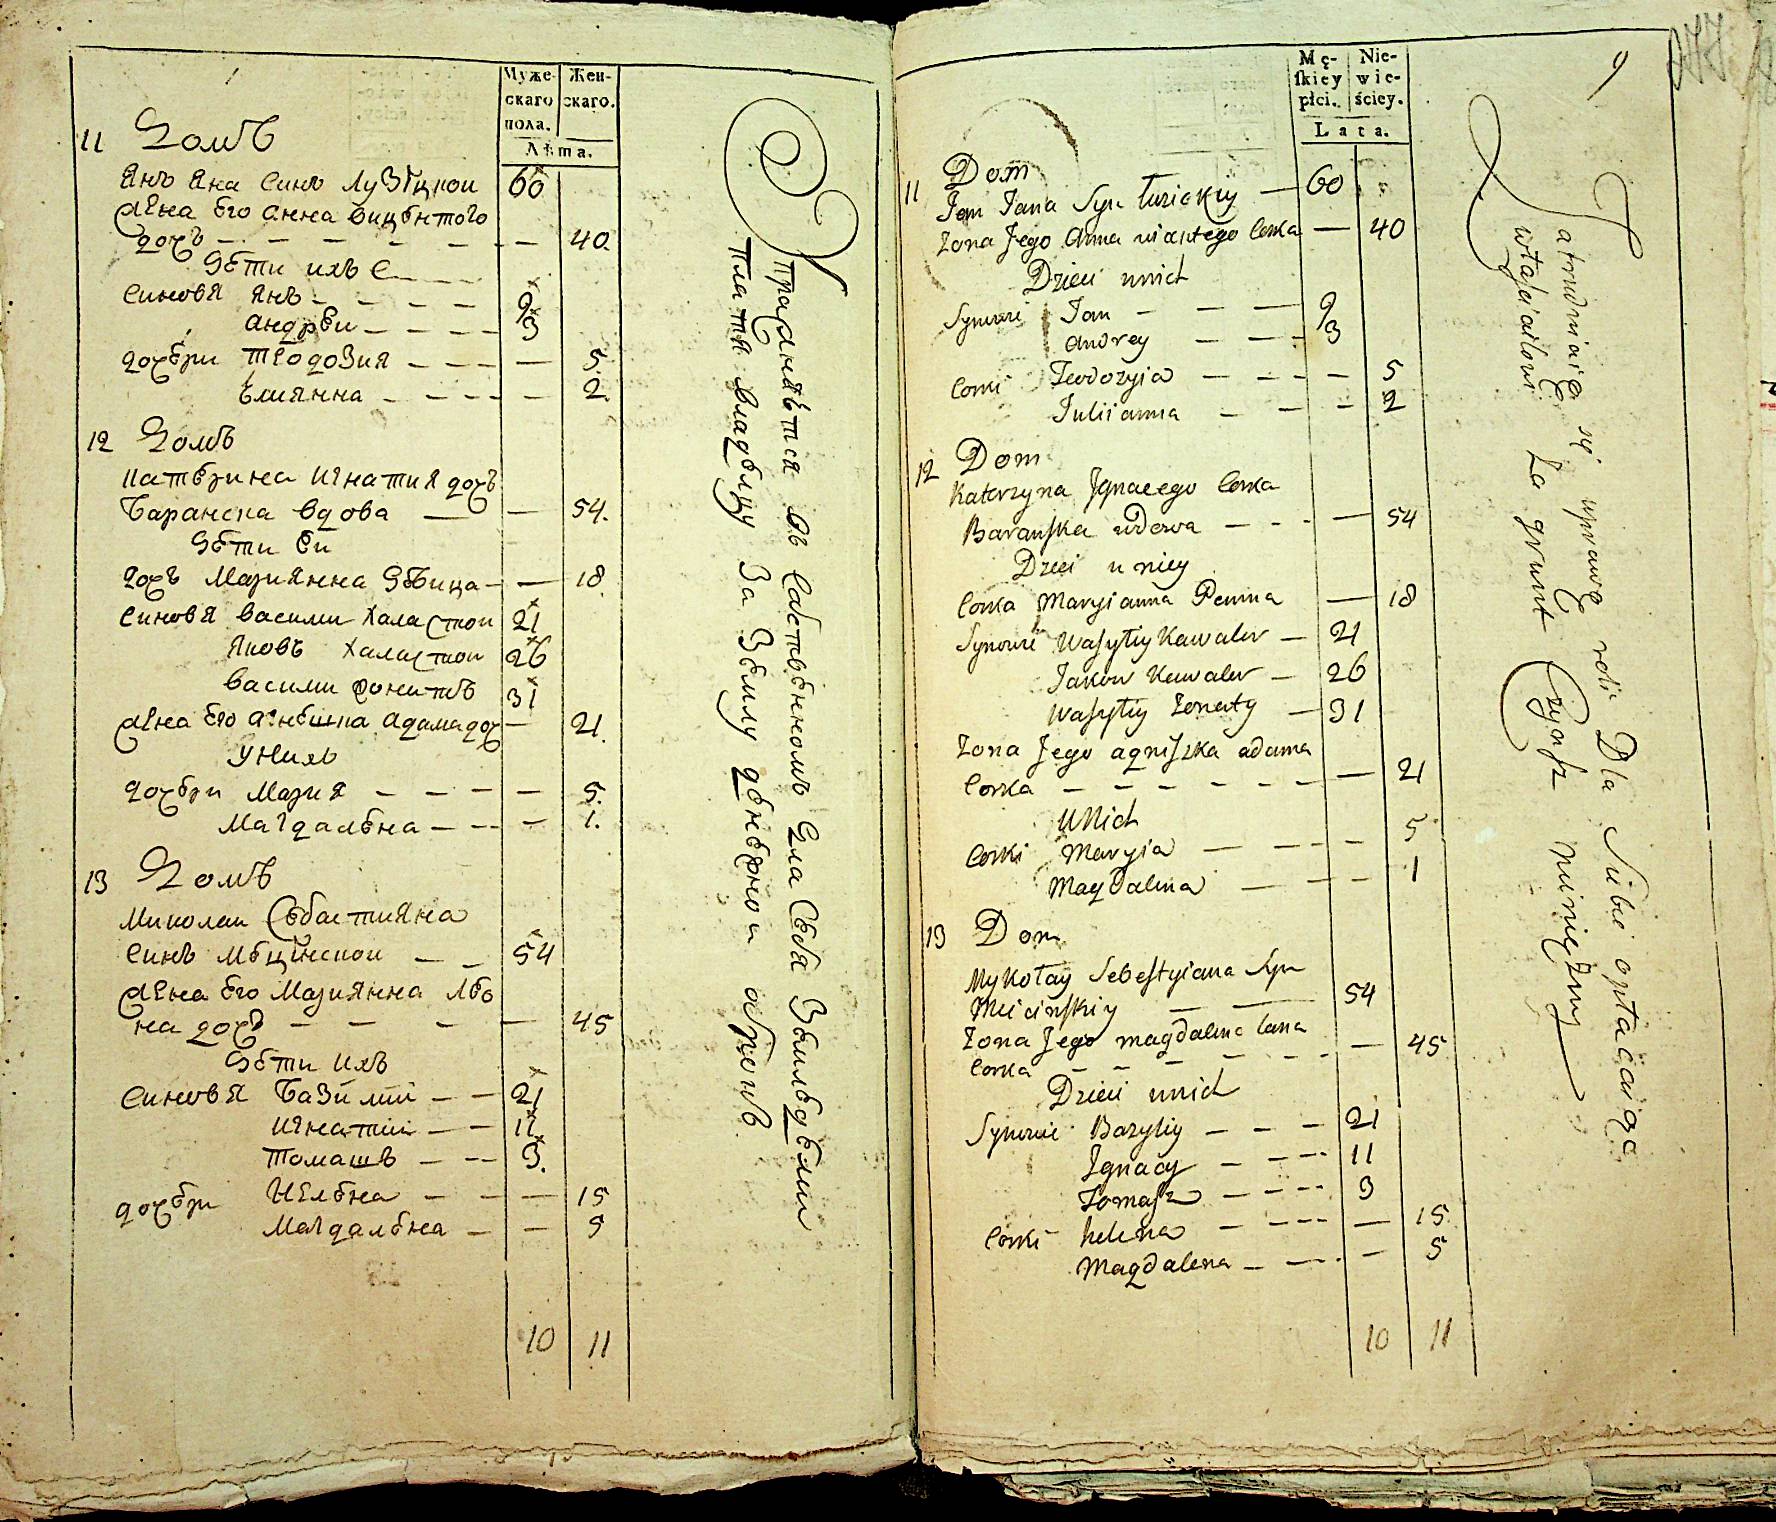 Муже-
скаго
пола.
Жен-
скаго.
Лѣта.
11 Домъ
Янъ Яна Синъ Лузѣцкои 60
жена Его Анна Вицентого
дохъ — — — — — — 40.
Дети ихъ
Синовя Янъ — — — — 9
Андреи — — — — 3
дохери Теодозия — — — — 5.
Елиянна — — — — — 2.
12 Домъ
Катерина Игнатия дохъ
Баранска вдова — — 54.
Дети Еи
Дохъ Мариянна Девица — — 18
Синовя Васили Халастои 21
Яковъ Халастои 26
Васили Жонатъ 31
жена Его Агнешка Адама дох — 21.
у них
дохери Мария — — — — 5.
Магдалена — — — — 1.
13 Домъ
Миколаи Себастияна
Синъ Мецинскои — — 54
жена Его Мариянна Лео
на дохъ — — — — 45
Дети ихъ
Синовя Базилии — — 21
Игнатии — — 11
Томашъ — — 3.
дохери Гелена — — — 15
Магдалена — — 5
10 11
Упражняется въ Собственномъ Для Себя Земледѣлии
платя Владелцу За Землу денежнои оброкъ
Mę-
ſkiey
płci.
Nie-
wie-
ściey.
Lata.
9
11 Dom
Jan Jana Syn Łuzickiy — 60
Zona Jego Anna wicentego Corka — 40
Dzieci unich
Synowie Jan — — — 9
Andrey — — — 3
Corki Teodozyia — — — — 5
Juliianna — — — 2
12 Dom
Katarzyna Jgnacego Corka
Baranſka wdowa — — — — 54
Dzieci u niey
Corka Maryianna Panna — 18
Synowie Waſyliy Kawaler — 21
Jakow Kawaler — 26
Waſyliy Zonaty — 31
Zona Jego agniſzka adama
Corka — — — — — — — 21
unich
Corki Maryia — — — — 5
Magdalena — — — 1
13 Dom
Mykołay Sebeſtyiana Syn
Miecinſkiy — — 54
Zona Jego magdalena Jana
Corka — — — — — — 45
Dzieci unich
Synowie Bazyliy — — — 21
Jgnacy — — — 11
Tomaſz — — — 3
Corki helena — — — — 15
Magdalena — — — — 5
10 11
Zatrudniaią się uprawą roli Dla Siebie opłacaiąc
właſcicielowi Za grunt Czynſz pieniężny